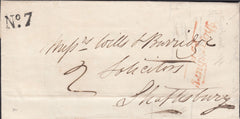 No. 7
Messrs Wills & Burridge
2
Solicitors
Shaftesbury